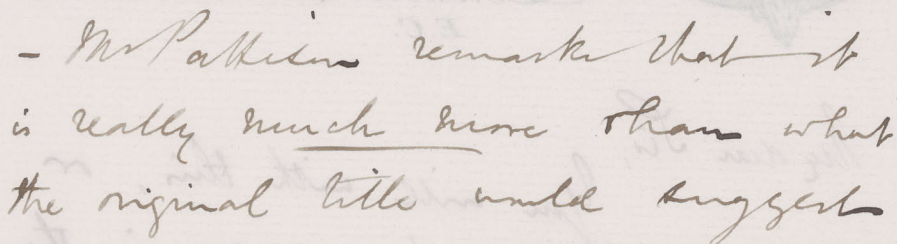 - Mr Pattison remarks that it
is really much more than what
the original title would suggest